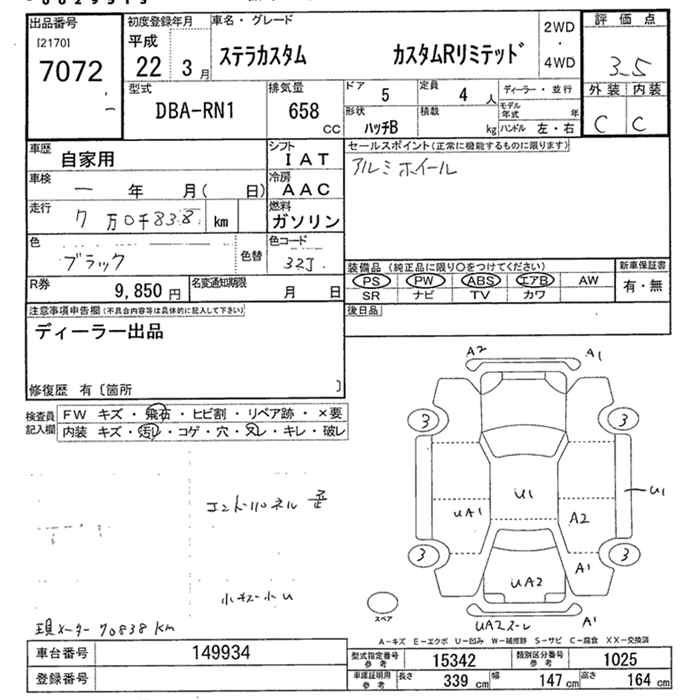 出品番号 初度登録年月 車名・グレード 2WD・4WD 評価点
[2170] 平成 ステラカスタム カスタムRリミテッド 3.5
7072 22年 3月 外装 内装
型式 排気量 ドア 5 定員 4人 ディーラー・並行 C C
DBA-RN1 658 CC 形状 ハッチB 積載 kg モデル年式 年
ハンドル 左・右
車歴 自家用 シフト IAT セールスポイント(正常に機能するものに限ります)
車検 ー 年 月( 日) 冷房 AAC アルミホイール
走行 7万0千838 km 燃料 ガソリン
色 ブラック 色替 色コード 32J 装備品(純正品に限り〇をつけてください) 新車保証書
PS PW ABS エアB AW 有・無
R券 9,850円 名変通知期限 月 日 SR ナビ TV カワ
注意事項申告欄(不具合内容等は具体的に記入して下さい) 後日品
ディーラー出品
修復歴 有〔箇所 〕
検査員記入欄 FW キズ・飛石・ヒビ割・リペア跡・×要
内装 キズ・汚レ・コゲ・穴・スレ・キレ・破レ
A2 A1
3 3
U1 U1
UA1 A2
エンドパネル 歪
3 A1 3
UA2
小キズ小U
スペア UA2スレ A1
現メーター 70838 km
A-キズ E-エクボ U-凹み W-補修跡 S-サビ C-腐食 XX-交換済
車台番号 149934 型式指定番号 参考 15342 類別区分番号 参考 1025
登録番号 車庫証明用 参考 長さ 339 cm 幅 147 cm 高さ 164 cm